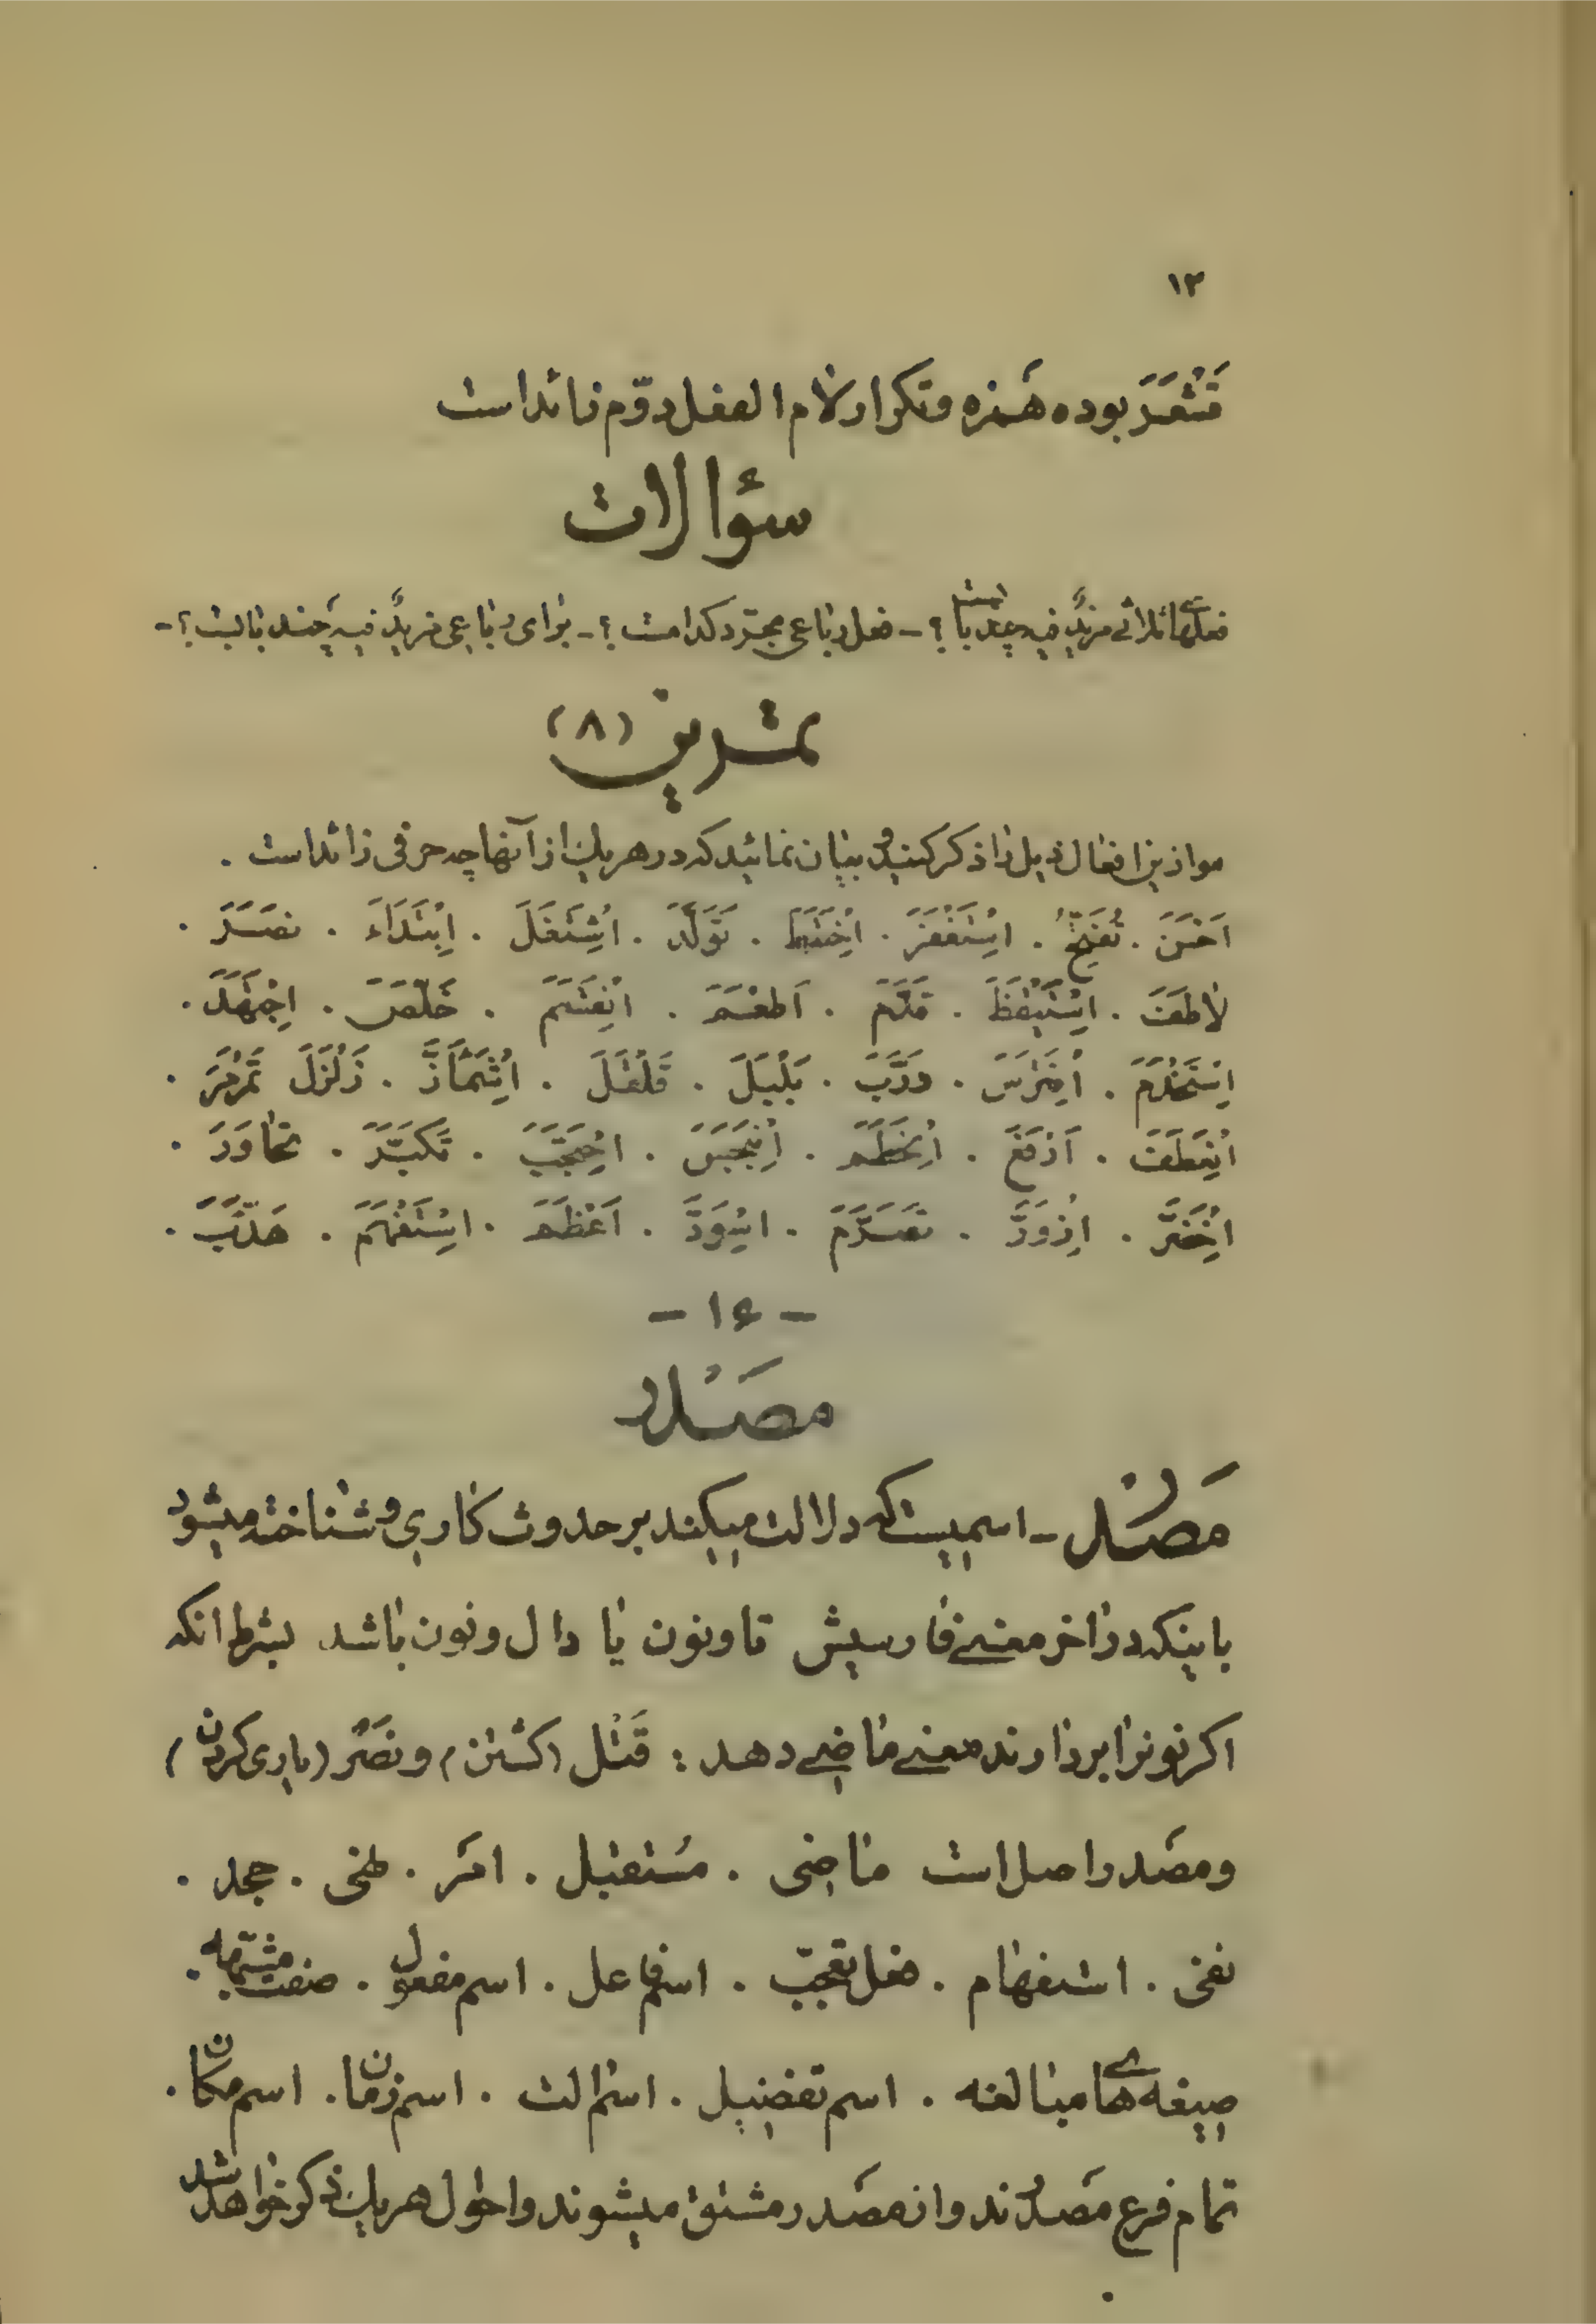 ۱۳
قَشْعَرَ بوده همزه و تکرار لام الفعل دوّم زائد است
سؤالات
فعلهای ثلاثی مزیدٌ فیه چند بابست ؟ – فعل رباعی مجرّد کدامست ؟ – برای رباعی مزیدٌ فیه چند بابست ؟ –
تمرین (۸)
موازین افعال ذیل را ذکر کنید و بیان نمائید که در هریک از آنها چه حرفی زائد است .
اَحْسَنَ . . اِسْتَغْفَرَ . . تَوَلَّدَ . اِشْتَغَلَ . اِبْتَدَاءَ .
لاطَفَ . اِسْتَیْقَظَ . قَدَّمَ . . اِنْقَسَمَ . خَلَّصَ . اِجْتَهَدَ .
اِسْتَخْدَمَ . . . بَلْبَلَ . قَلْقَلَ . اِشْمَأَزَّ . زَلْزَلَ
اِنْعَطَفَ . . . . اِحْتَجَبَ . تَکَبَّرَ .
اِخْضَرَّ . اِزْوَرَّ . . اِسْوَدَّ . اَعْظَمَ . اِسْتَفْهَمَ . هَذَّبَ .
– ۱۶ –
مصدر
مصدر – اسمیست که دلالت میکند بر حدوث کاری و شناخته میشود
باینکه در اخر معنی فارسیش تا و نون یا دال و نون باشد بشرط انکه
اکر نونرا بردارند معنی ماضی دهد : قَتْل (کشتن) و نَصْر (یاری کردن)
و مصدر اصل است ماضی . مستقبل . امر . نهی . جحد .
نفی . استفهام . فعل تعجّب . اسم فاعل . اسم مفعول . صفت مشبّهه .
صیغه های مبالغه . اسم تفضیل . اسم الت . اسم زمان . اسم مکان .
تمام فرع مصدرند و از مصدر مشتق میشوند و احوال هریک ذکر خواهد شد